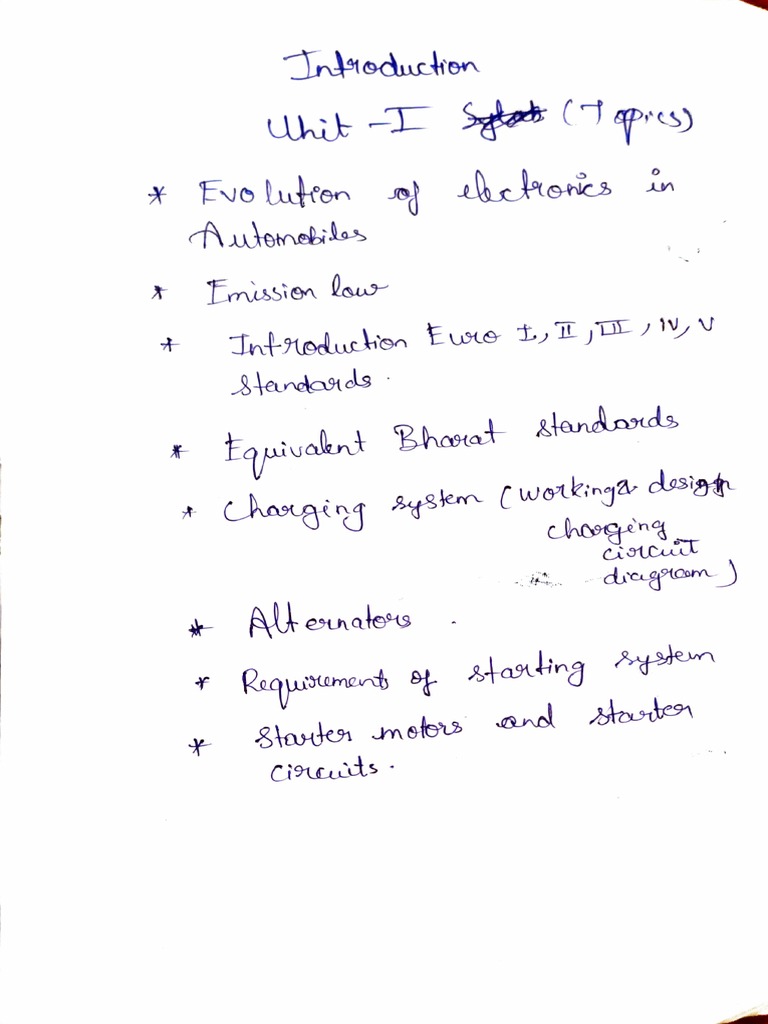 Introduction
Unit - I (Topics)
* Evolution of electronics in
Automobiles
* Emission law
* Introduction Euro I, II, III, IV, V
standards.
* Equivalent Bharat standards
* Charging system (working & design
charging
circuit
diagram)
* Alternators.
* Requirements of starting system
* Starter motors and starter
circuits.